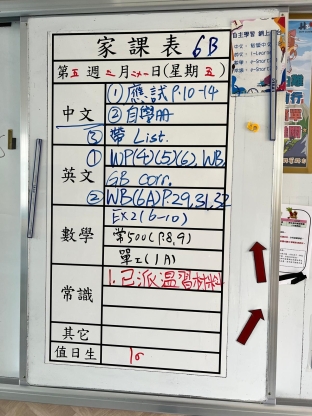 家課表 6B
第五週二月二十一日(星期五)
中文
① 應試 P.10-14
② 自學冊
③ 帶 List.
英文
① WP(4)(5)(6), WB,
GB corr.
② WB(6A) P.29,31,32
數學
EX2(6-10)
常500(P.8,9)
單工(1A)
常識
1. 已派溫習
其它
值日生